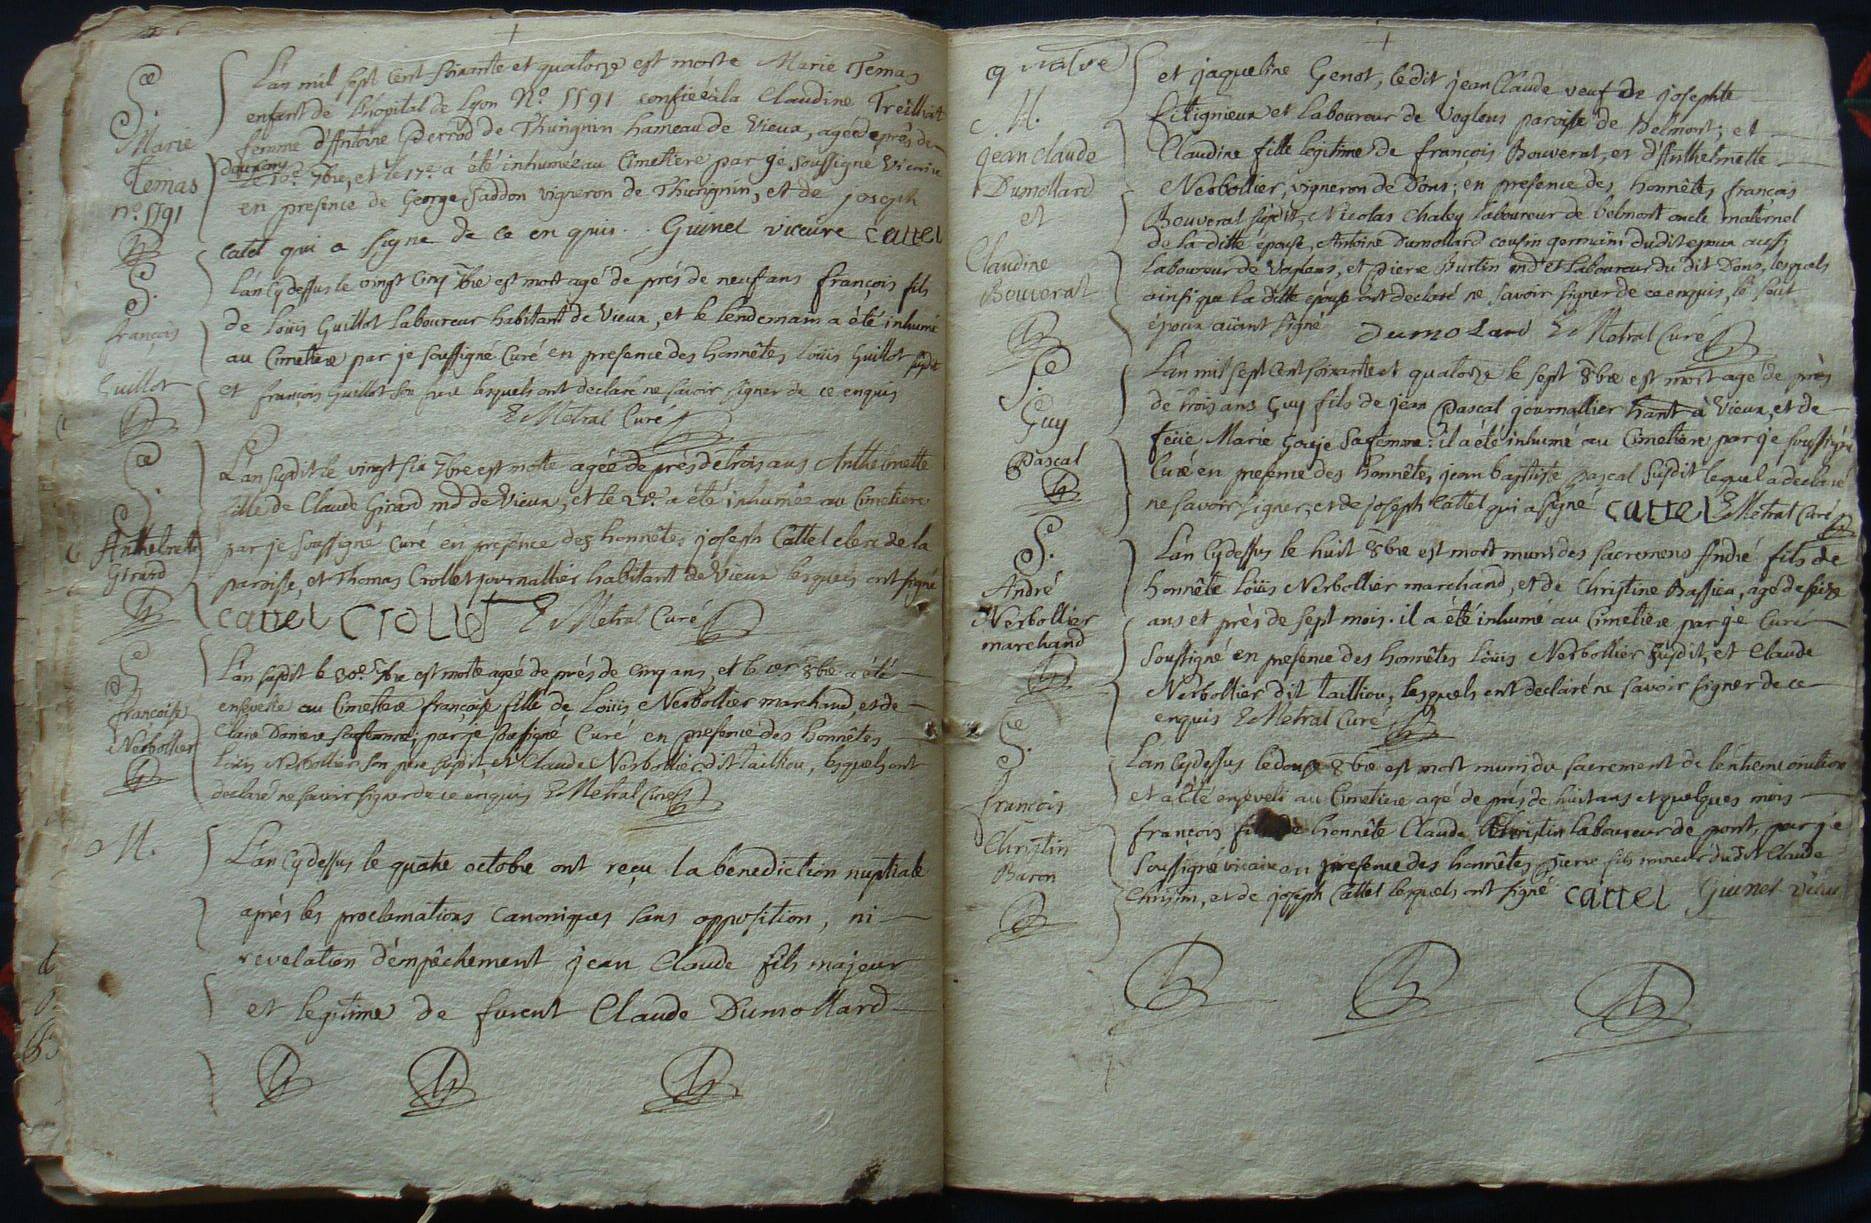 Sre
Marie
Temas
n° 5591
L'an mil sept cent soixante et quatorze est morte Marie Temas
enfant de l'hopital de Lyon N° 5591 confiée à la Claudine Treillat
femme d'Antoine Perrod de Thurignin hameau de Vieux, agée de près de
deux ans
le 16e 7bre, et le 17e a été inhumée au Cimetiere par je soussigné vicaire
en presence de George Saddon vigneron de Thurignin, et de joseph
catel qui a signé de ce enquis. Guinet vicaire cattel
S.
françois
Guillot
L'an cydessus le vingt cinq 7bre est mort agé de près de neuf ans françois fils
de Loüis Guillot Laboureur habitant de Vieux, et le lendemain a été inhumé
au Cimetiere par je soussigné Curé en presence des honnêtes Loüis Guillot susdit
et françois Guillot son frere lesquels ont declaré ne savoir signer de ce enquis
Metral Curé
Sre
Anthelmette
Girard
L'an susdit le vingt six 7bre est morte agée de près de trois ans Anthelmette
fille de Claude Girard md de Vieux, et le 27e a été inhumée au Cimetiere
par je soussigné Curé en presence des honnêtes joseph Cattel clerc de la
paroisse, et Thomas Crollet journallier habitant de Vieux lesquels ont signé
cattel Crollet Metral Curé
Sre
françoise
Nerbollier
L'an susdit le 30e 7bre est morte agée de près de cinq ans, et le 1er 8bre a été
ensevelie au Cimetiere françoise fille de Loüis Nerbollier marchand, et de
Claire sa femme, par je soussigné Curé en presence des honnêtes
Loüis Nerbollier son pere susdit, et Claude Nerbollier dit tailliou, lesquels ont
declaré ne savoir signer de ce enquis Metral Curé
M.
L'an cydessus le quatre octobre ont reçu la bénédiction nuptiale
après les proclamations canoniques sans opposition, ni
revelation d'empêchement jean Claude fils majeur
et legitime de furent Claude Dumollard
quatre
M.
jean claude
Dumollard
et
Claudine
Bouverat
et jaqueline Genot, ledit jean Claude veuf de josephte
fitignieux et laboureur de Voglens paroisse de Belmont; et
Claudine fille legitime de françois Bouverat, et d'Anthelmette
Nerbollier, vigneron de Dons; en presence des honnêtes françois
Bouverat susdit, Nicolas Chaley Laboureur de belmont oncle maternel
de la ditte épouse, Antoine Dumollard cousin germain dudit epoux aussi
Laboureur de Voglens, et Pierre Burtin md et Laboureur du dit Dons, lesquels
ainsi que la ditte épouse ont declaré ne savoir signer de ce enquis, le seul
époux aïant signé Dumolard Metral Curé
Sre
Guy
Pascal
L'an mil sept cent soixante et quatorze le sept 8bre est mort agé de près
de trois ans Guy fils de jean Pascal journallier hant à Vieux, et de
feüe Marie Gouje sa femme: il a été inhumé au Cimetiere par je soussigné
Curé en presence des honnêtes jean baptiste pascal susdit lequel a declaré
ne savoir signer, et de joseph Cattel qui a signé cattel Metral Curé
S.
André
Nerbollier
marchand
L'an Cydessus le huit 8bre est mort muni des sacremens André fils de
honnête Loüis Nerbollier marchand, et de Christine Bassieu, agé de seize
ans et près de sept mois. il a été inhumé au Cimetiere par je Curé
soussigné en presence des honnêtes Loüis Nerbollier susdit, et Claude
Nerbollier dit tailliou, lesquels ont declaré ne savoir signer de ce
enquis Metral Curé
Sre
francois
Christin
Baron
L'an Cydessus le douze 8bre est mort muni du sacrement de l'extreme onction
et a été enseveli au Cimetiere agé de près de huit ans et quelques mois
françois fils de honnête Claude Christin laboureur de pont, par je
soussigné vicaire en presence des honnêtes Pierre fils mineur dudit Claude
Christin, et de joseph Cattel lesquels ont signé cattel Guinet vicaire